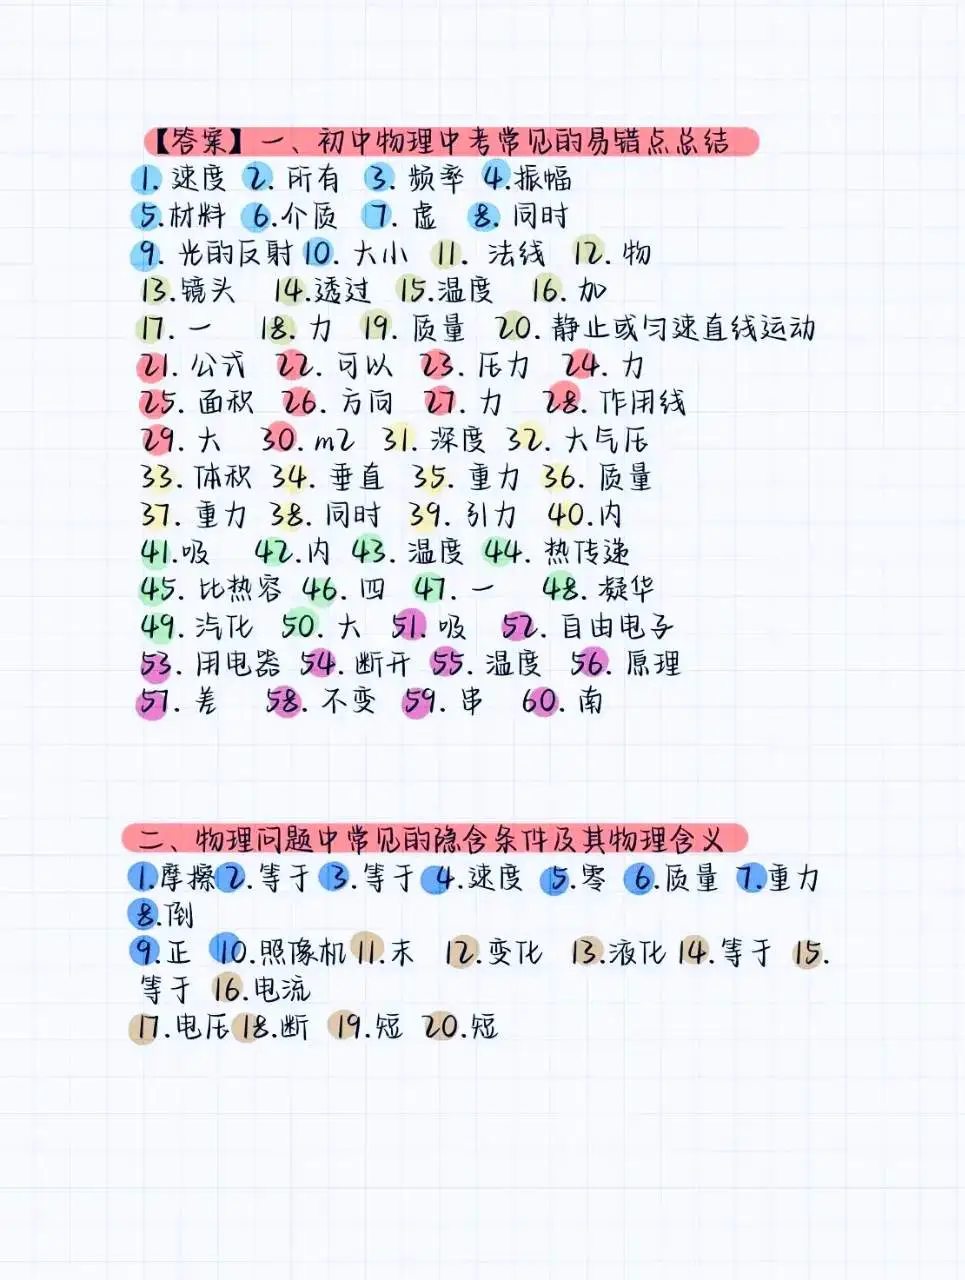 【答案】一、初中物理中考常见的易错点总结
1. 速度 2. 所有 3. 频率 4.振幅
5.材料 6.介质 7. 虚 8. 同时
9. 光的反射 10. 大小 11. 法线 12. 物
13.镜头 14.透过 15.温度 16. 加
17. 一 18. 力 19. 质量 20. 静止或匀速直线运动
21. 公式 22. 可以 23. 压力 24. 力
25. 面积 26. 方向 27. 力 28. 作用线
29. 大 30. m2 31. 深度 32. 大气压
33. 体积 34. 垂直 35. 重力 36. 质量
37. 重力 38. 同时 39. 引力 40.内
41.吸 42.内 43. 温度 44. 热传递
45. 比热容 46. 四 47. 一 48. 凝华
49. 汽化 50. 大 51. 吸 52. 自由电子
53. 用电器 54. 断开 55. 温度 56. 原理
57. 差 58. 不变 59. 串 60. 南
二、物理问题中常见的隐含条件及其物理含义
1.摩擦 2.等于 3.等于 4.速度 5.零 6.质量 7.重力
8.倒
9.正 10.照像机 11.末 12.变化 13.液化 14.等于 15.
等于 16.电流
17.电压 18.断 19.短 20.短